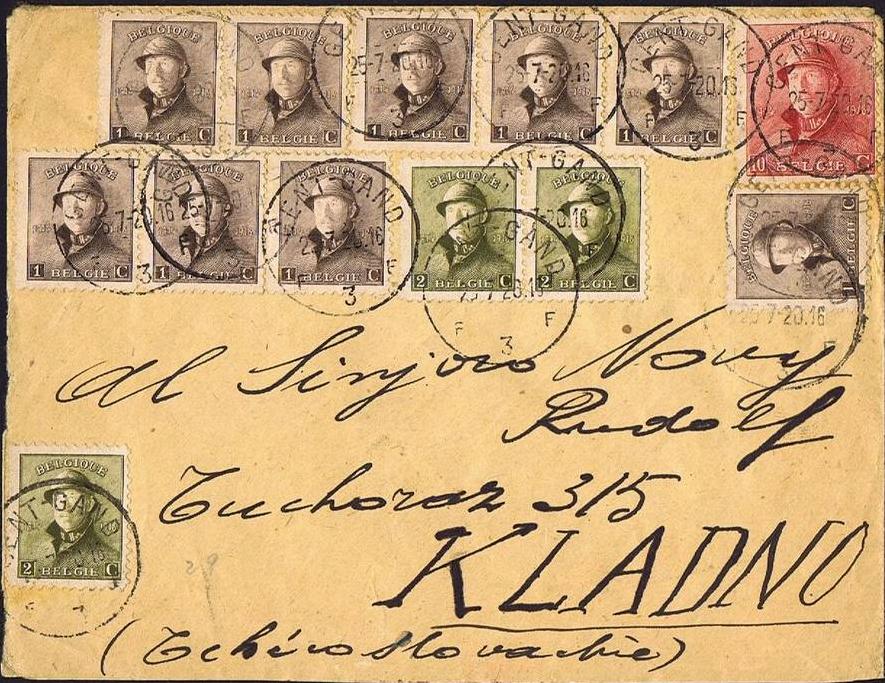 BELGIQUE BELGIQUE BELGIQUE BELGIQUE BELGIQUE BELGIQUE
1 BELGIE C 1 BELGIE C 1 BELGIE C 1 BELGIE C 1 BELGIE C 10 BELGIE C
GENT-GAND 25-7-20.16 F 3 F
BELGIQUE BELGIQUE BELGIQUE BELGIQUE BELGIQUE BELGIQUE
1 BELGIE C 1 BELGIE C 1 BELGIE C 2 BELGIE C 2 BELGIE C 1 BELGIE C
GENT-GAND 25-7-20.16 F 3 F
Al Sinjoro Novy
Rudolf
Tuchoraz 315
KLADNO
(Tchécoslovachie)
BELGIQUE
2 BELGIE C
GENT-GAND
29